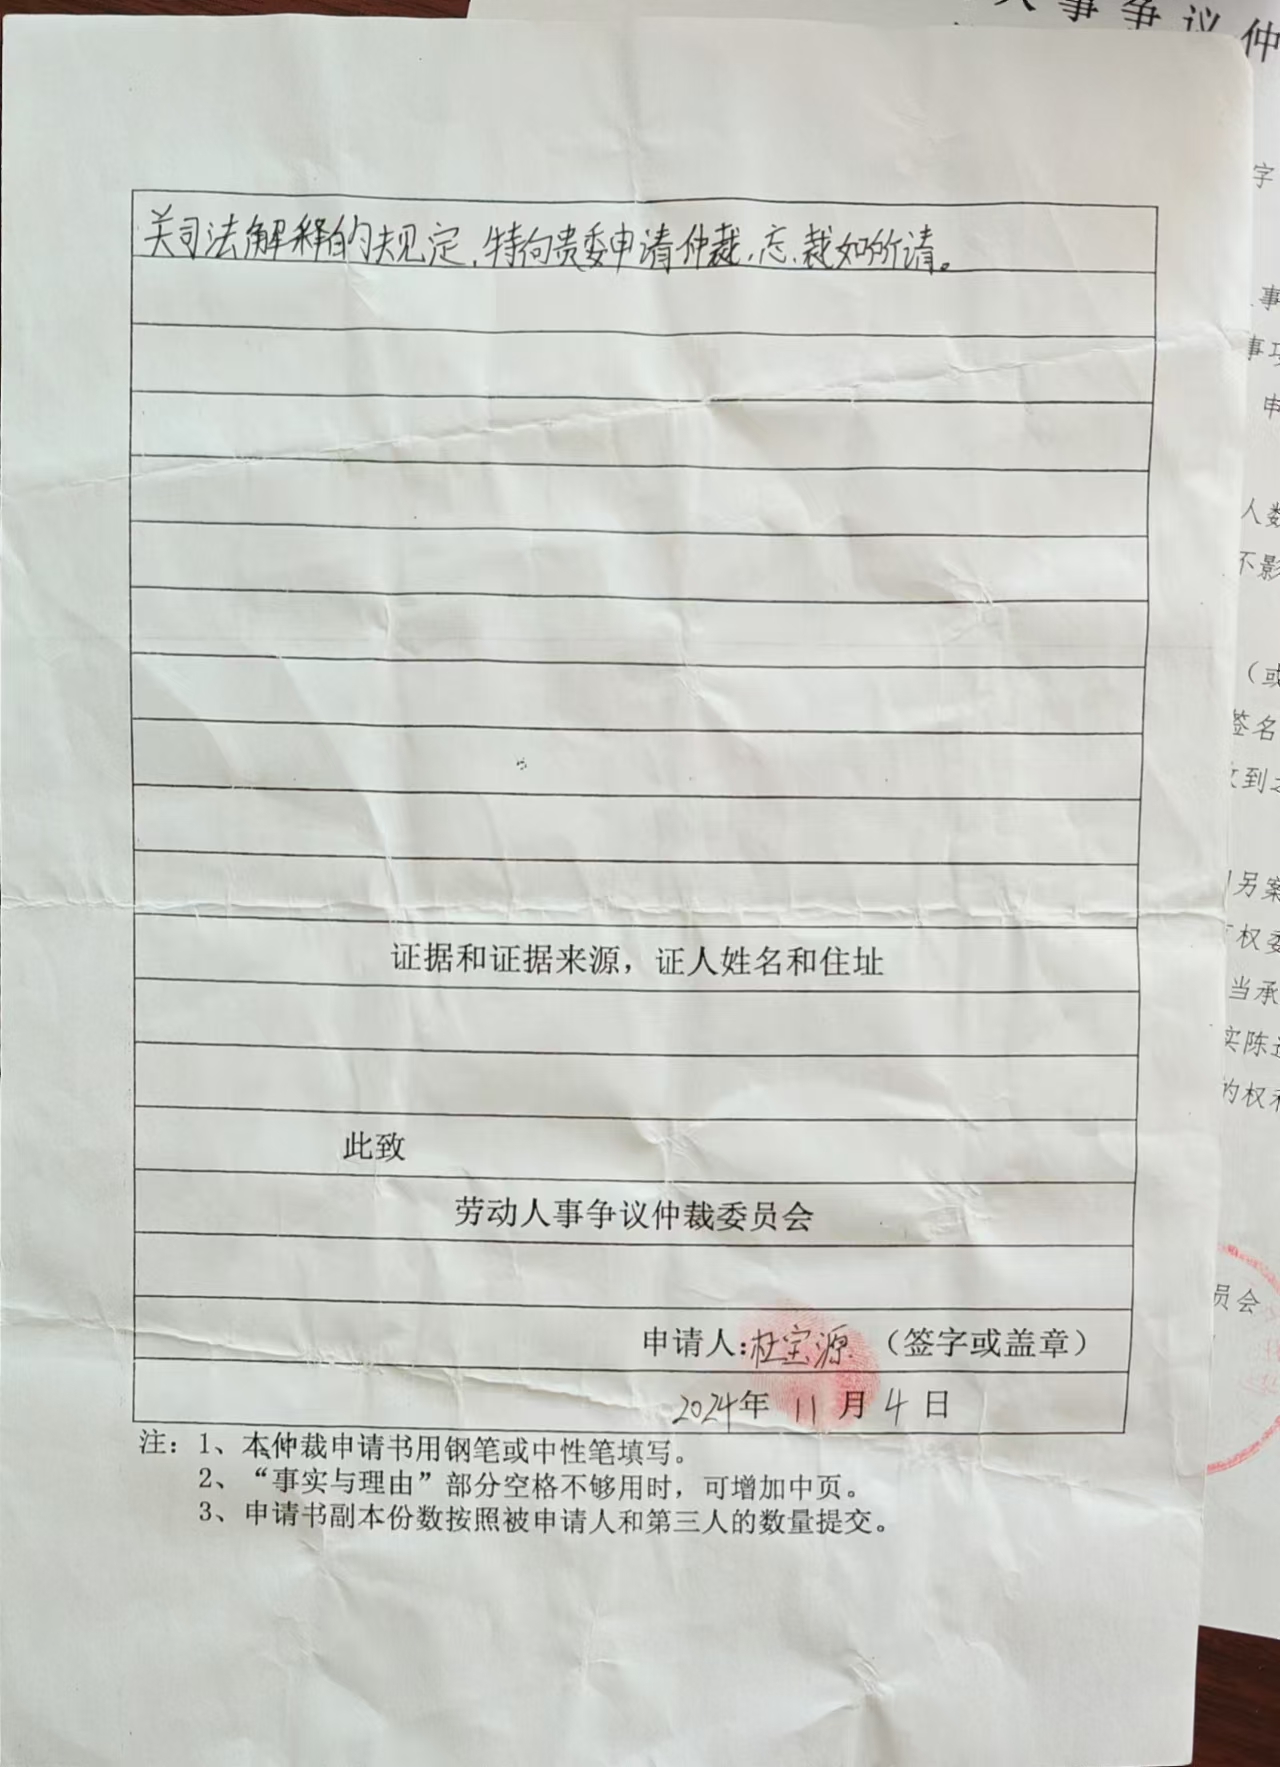 人事争议仲
关司法解释的规定,特向贵委申请仲裁,恳裁如所请。
证据和证据来源，证人姓名和住址
此致
劳动人事争议仲裁委员会
申请人:杜宝源（签字或盖章）
2024年 11 月 4 日
注：1、本仲裁申请书用钢笔或中性笔填写。
2、“事实与理由”部分空格不够用时，可增加中页。
3、申请书副本份数按照被申请人和第三人的数量提交。
字
事
事项
申
人数
不影
（或
签名
到
另案
权委
当承
实陈述
的权利
员会